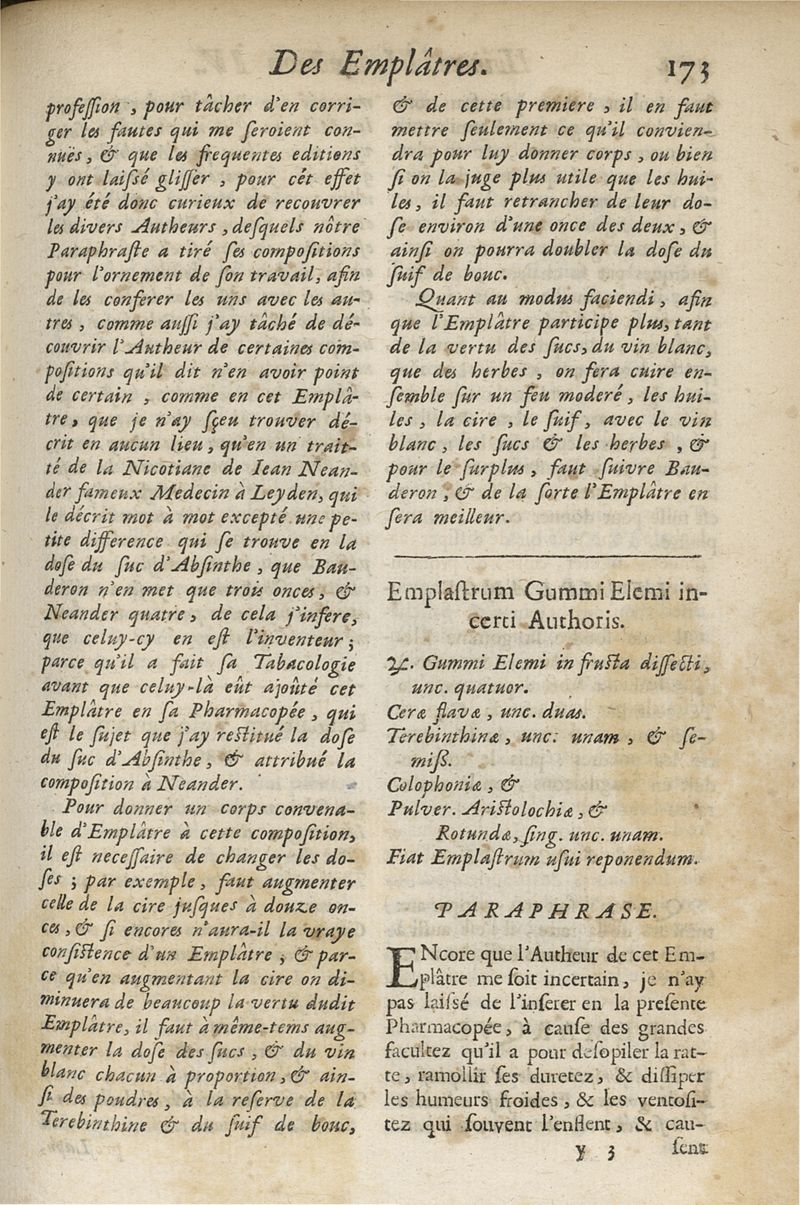 Des Emplâtres. 173
profeſſion , pour tâcher d'en corri-
ger les fautes qui me ſeroient con-
nuës , & que les frequentes editions
y ont laiſsé gliſſer , pour cét effet
j'ay été donc curieux de recouvrer
les divers Autheurs , deſquels nôtre
Paraphraſte a tiré ſes compoſitions
pour l'ornement de ſon travail, afin
de les conferer les uns avec les au-
tres , comme auſſi j'ay tâché de dé-
couvrir l'Autheur de certaines com-
poſitions qu'il dit n'en avoir point
de certain , comme en cet Emplâ-
tre, que je n'ay ſçeu trouver dé-
crit en aucun lieu , qu'en un trait-
té de la Nicotiane de Iean Nean-
der fameux Medecin à Leyden, qui
le décrit mot à mot excepté une pe-
tite difference qui ſe trouve en la
doſe du ſuc d'Abſinthe , que Bau-
deron n'en met que trois onces, &
Neander quatre, de cela j'infere,
que celuy-cy en eſt l'inventeur ;
parce qu'il a fait ſa Tabacologie
avant que celuy-là eût ajoûté cet
Emplâtre en ſa Pharmacopée , qui
eſt le ſujet que j'ay reſtitué la doſe
du ſuc d'Abſinthe , & attribué la
compoſition à Neander.
Pour donner un corps convena-
ble d'Emplâtre à cette compoſition,
il eſt neceſſaire de changer les do-
ſes ; par exemple , faut augmenter
celle de la cire juſques à douze on-
ces , & ſi encores n'aura-il la vraye
conſiſtence d'un Emplâtre ; & par-
ce qu'en augmentant la cire on di-
minuera de beaucoup la vertu dudit
Emplâtre, il faut à même-tems aug-
menter la doſe des ſucs , & du vin
blanc chacun à proportion, & ain-
ſi des poudres , à la reſerve de la
Terebinthine & du ſuif de bouc,
& de cette premiere , il en faut
mettre ſeulement ce qu'il convien-
dra pour luy donner corps , ou bien
ſi on la juge plus utile que les hui-
les, il faut retrancher de leur do-
ſe environ d'une once des deux, &
ainſi on pourra doubler la doſe du
ſuif de bouc.
Quant au modus faciendi , afin
que l'Emplâtre participe plus, tant
de la vertu des ſucs, du vin blanc,
que des herbes , on fera cuire en-
ſemble ſur un feu moderé , les hui-
les , la cire , le ſuif, avec le vin
blanc , les ſucs & les herbes , &
pour le ſurplus , faut ſuivre Bau-
deron , & de la ſorte l'Emplâtre en
ſera meilleur.
Emplaſtrum Gummi Elemi in-
certi Authoris.
℞. Gummi Elemi in fruſta diſſecti,
unc. quatuor.
Ceræ flavæ , unc. duas.
Terebinthinæ , unc: unam , & ſe-
miß.
Colophoniæ , &
Pulver. Ariſtolochiæ , &
Rotundæ, ſing. unc. unam.
Fiat Emplaſtrum uſui reponendum.
PARAPHRASE.
ENcore que l'Autheur de cet Em-
plâtre me ſoit incertain, je n'ay
pas laiſsé de l'inſerer en la preſente
Pharmacopée, à cauſe des grandes
facultez qu'il a pour deſopiler la rat-
te , ramollir ſes duretez, & diſſiper
les humeurs froides , & les ventoſi-
tez qui ſouvent l'enflent, & cau-
Y 3 ſent